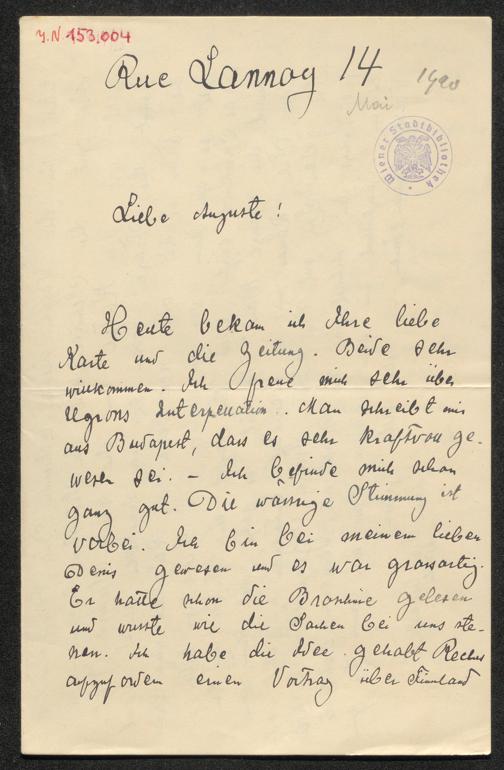 J.N. 153.004
Rue Lannoy 14
1920
Mai
Wiener Stadtbibliothek
Liebe Auguste!
Heute bekam ich Ihre liebe
Karte und die Zeitung. Beide sehr
willkommen. Ich freue mich sehr über
Ugrons Interpellation. Man schreibt mir
aus Budapest, dass es sehr kraftvoll ge-
wesen sei. – Ich befinde mich schon
ganz gut. Die wässrige Stimmung ist
vorbei. Ich bin bei meinem lieben
Denis gewesen und es war grossartig.
Er hatte schon die Broshüre gelesen
und wusste wie die Sachen bei uns ste-
hen. Ich habe die Idee gehabt Reclus
aufzufordern einen Vortrag über Finnland